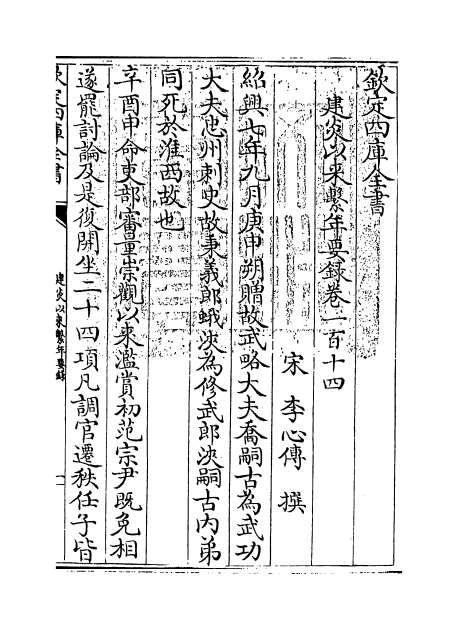 欽定四庫全書
建炎以來繫年要録卷一百十四
宋 李心傳 撰
紹興七年九月庚申朔贈故武略大夫喬嗣古為武功
大夫忠州刺史故秉義郎蛾泱為修武郎泱嗣古内弟
同死於淮西故也
辛酉申命吏部審量崇觀以來濫賞初范宗尹既免相
遂罷討論及是復開坐二十四項凡調官遷秩任子皆
欽定四庫全書
建炎以來繫年要録
一